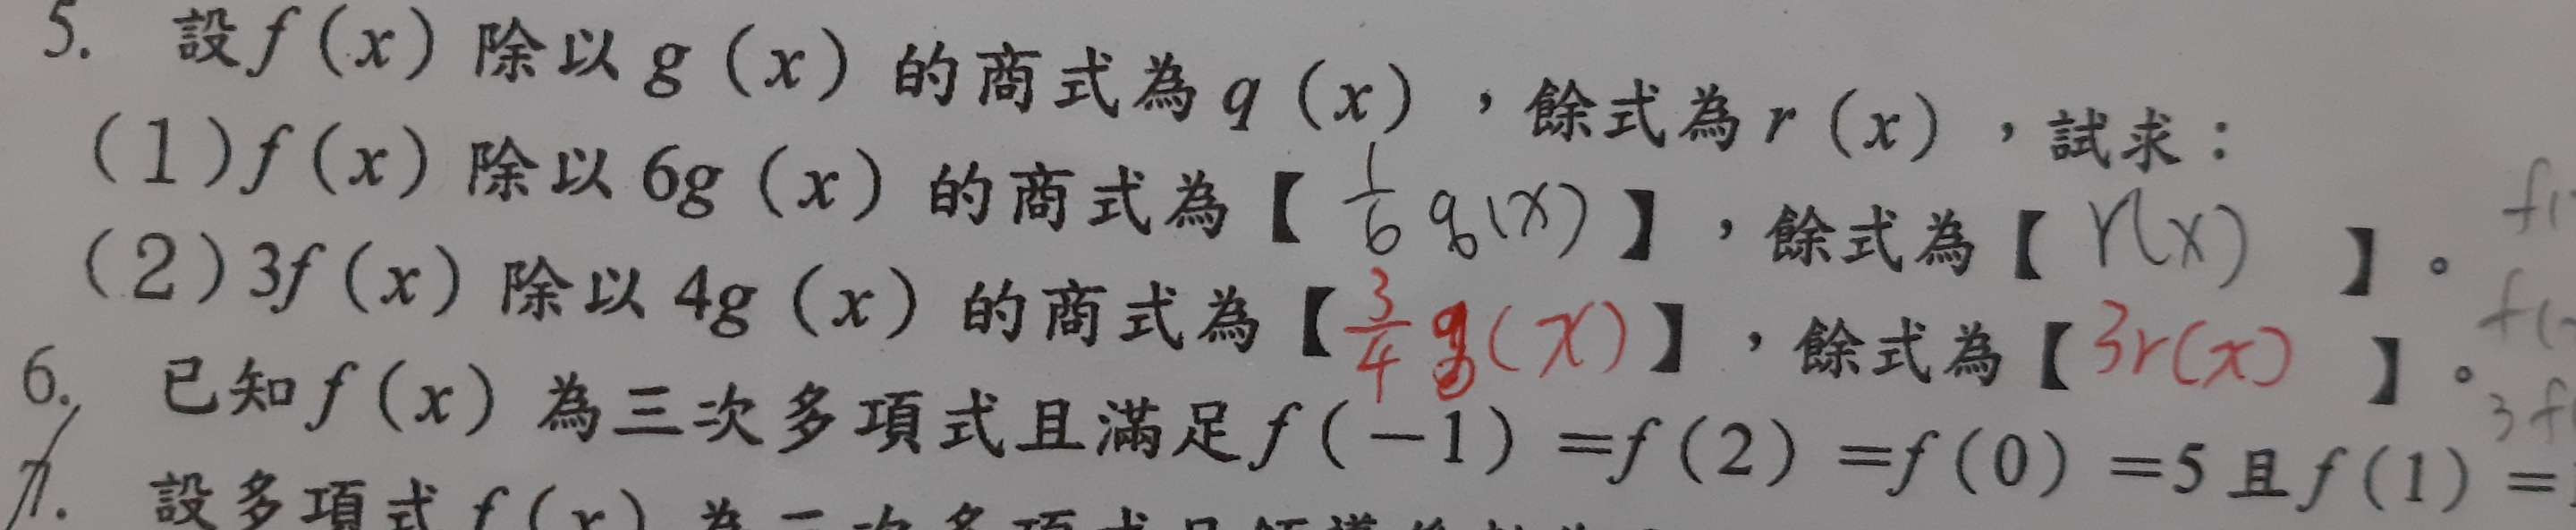 5. 設f(x)除以g(x)的商式為q(x),餘式為r(x),試求:
(1)f(x)除以6g(x)的商式為【1/6 q(x)】,餘式為【r(x)】。
(2)3f(x)除以4g(x)的商式為【3/4 q(x)】,餘式為【3r(x)】。
6. 已知f(x)為三次多項式且滿足f(-1)=f(2)=f(0)=5且f(1)=
7. 設多項式f(x)為